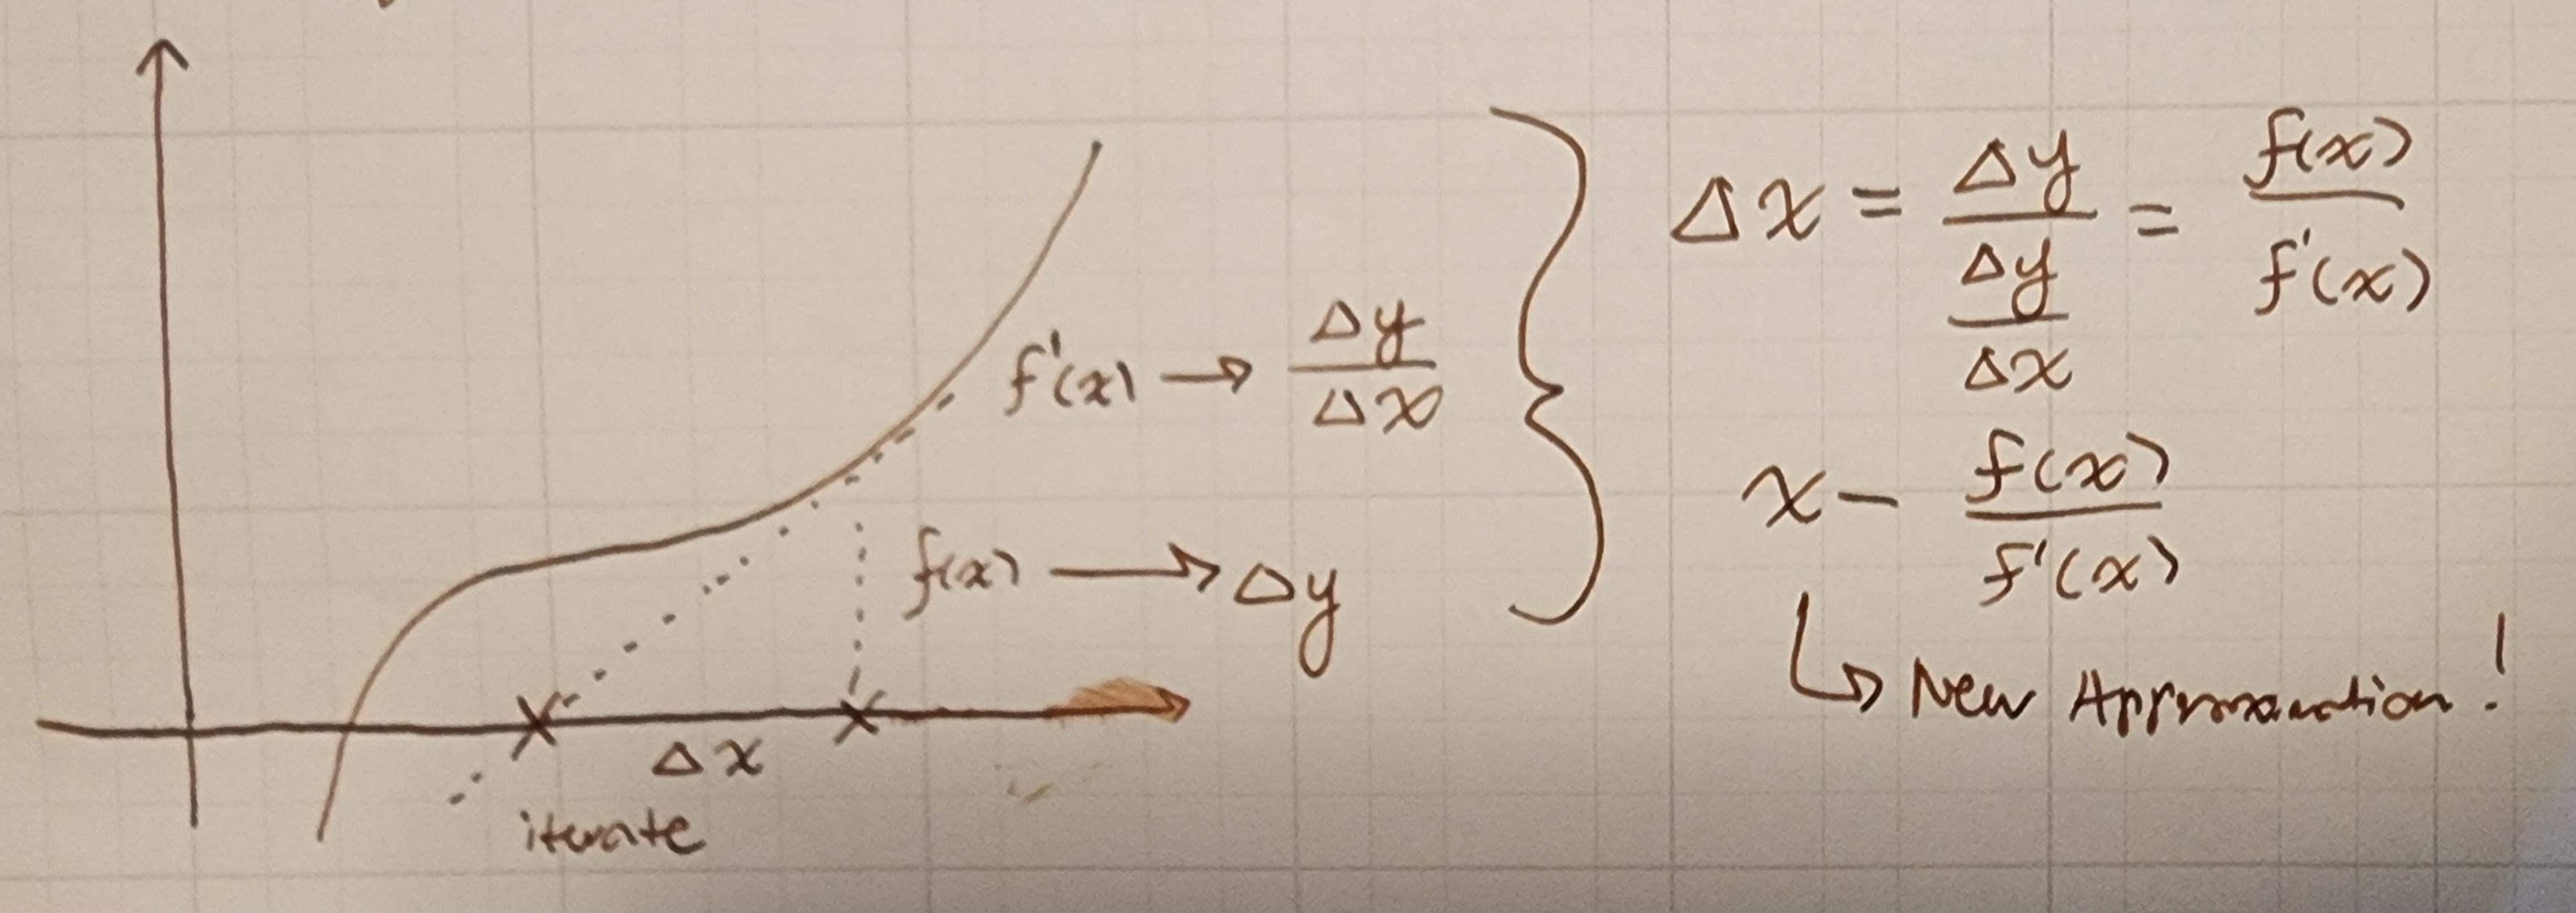 f'(x) → Δy/Δx
f(x) → Δy
Δx
iterate
Δx = Δy/(Δy/Δx) = f(x)/f'(x)
x - f(x)/f'(x)
↳ New Approximation!